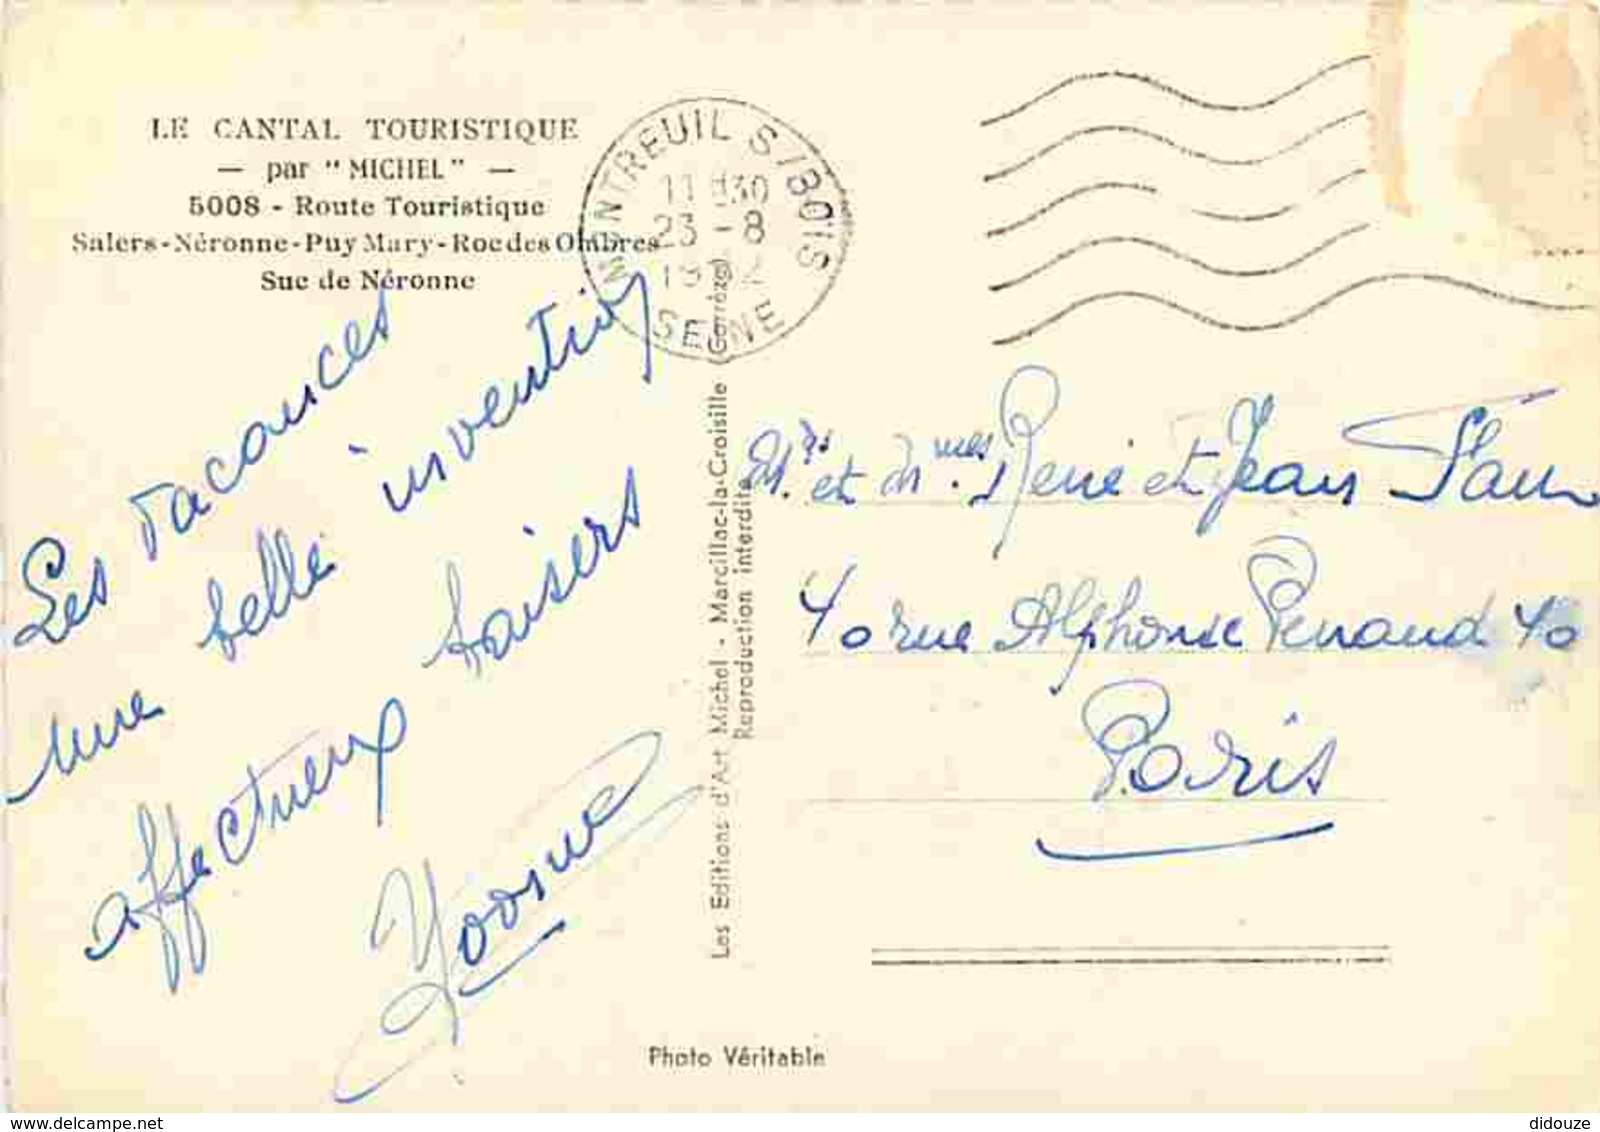 LE CANTAL TOURISTIQUE
— par "MICHEL" —
5008 - Route Touristique
Salers-Néronne-Puy Mary-Roc des Ombres
Suc de Néronne
MONTREUIL S/BOIS
11H30
23 - 8
SEINE
Les vacances
une belle invention
affectueux baisers
Yvonne
Les Editions d'Art Michel - Marcillac-la-Croisille (Corrèze)
Reproduction interdite
Mrs et Mmes René et Jean
40 rue Alphonse Penaud
Paris
Photo Véritable
delcampe.net
didouze